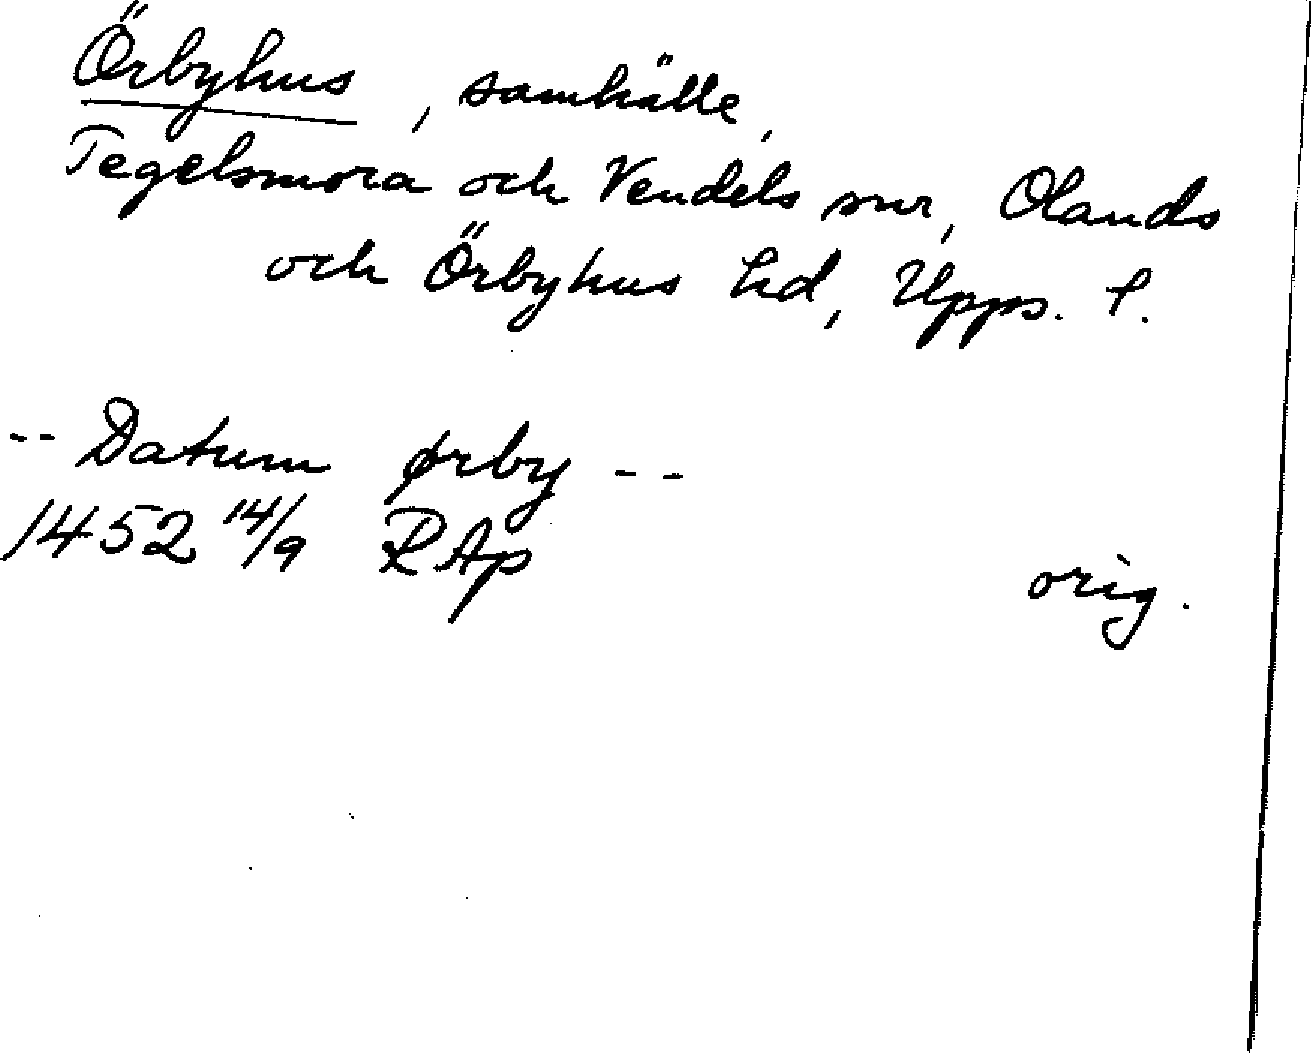 Örbyhus, samhälle,
Tegelsmora och Vendels snr, Olands
och Örbyhus hd, Upps. l.
-- Datum ørby --
1452 14/9 RAp orig.